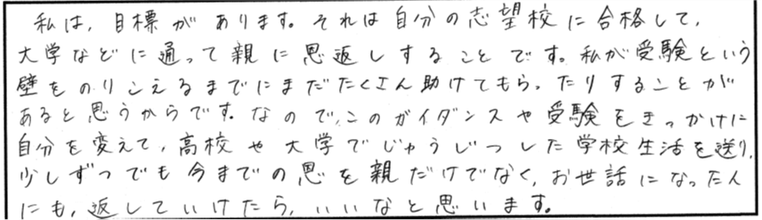 私は，目標があります。それは自分の志望校に合格して，
大学などに通って親に恩返しすることです。私が受験という
壁をのりこえるまでにまだたくさん助けてもらったりすることが
あると思うからです。なので，このガイダンスや受験をきっかけに
自分を変えて，高校や大学でじゅうじつした学校生活を送り，
少しずつでも今までの恩を親だけでなく，お世話になった人
にも，返していけたら，いいなと思います。